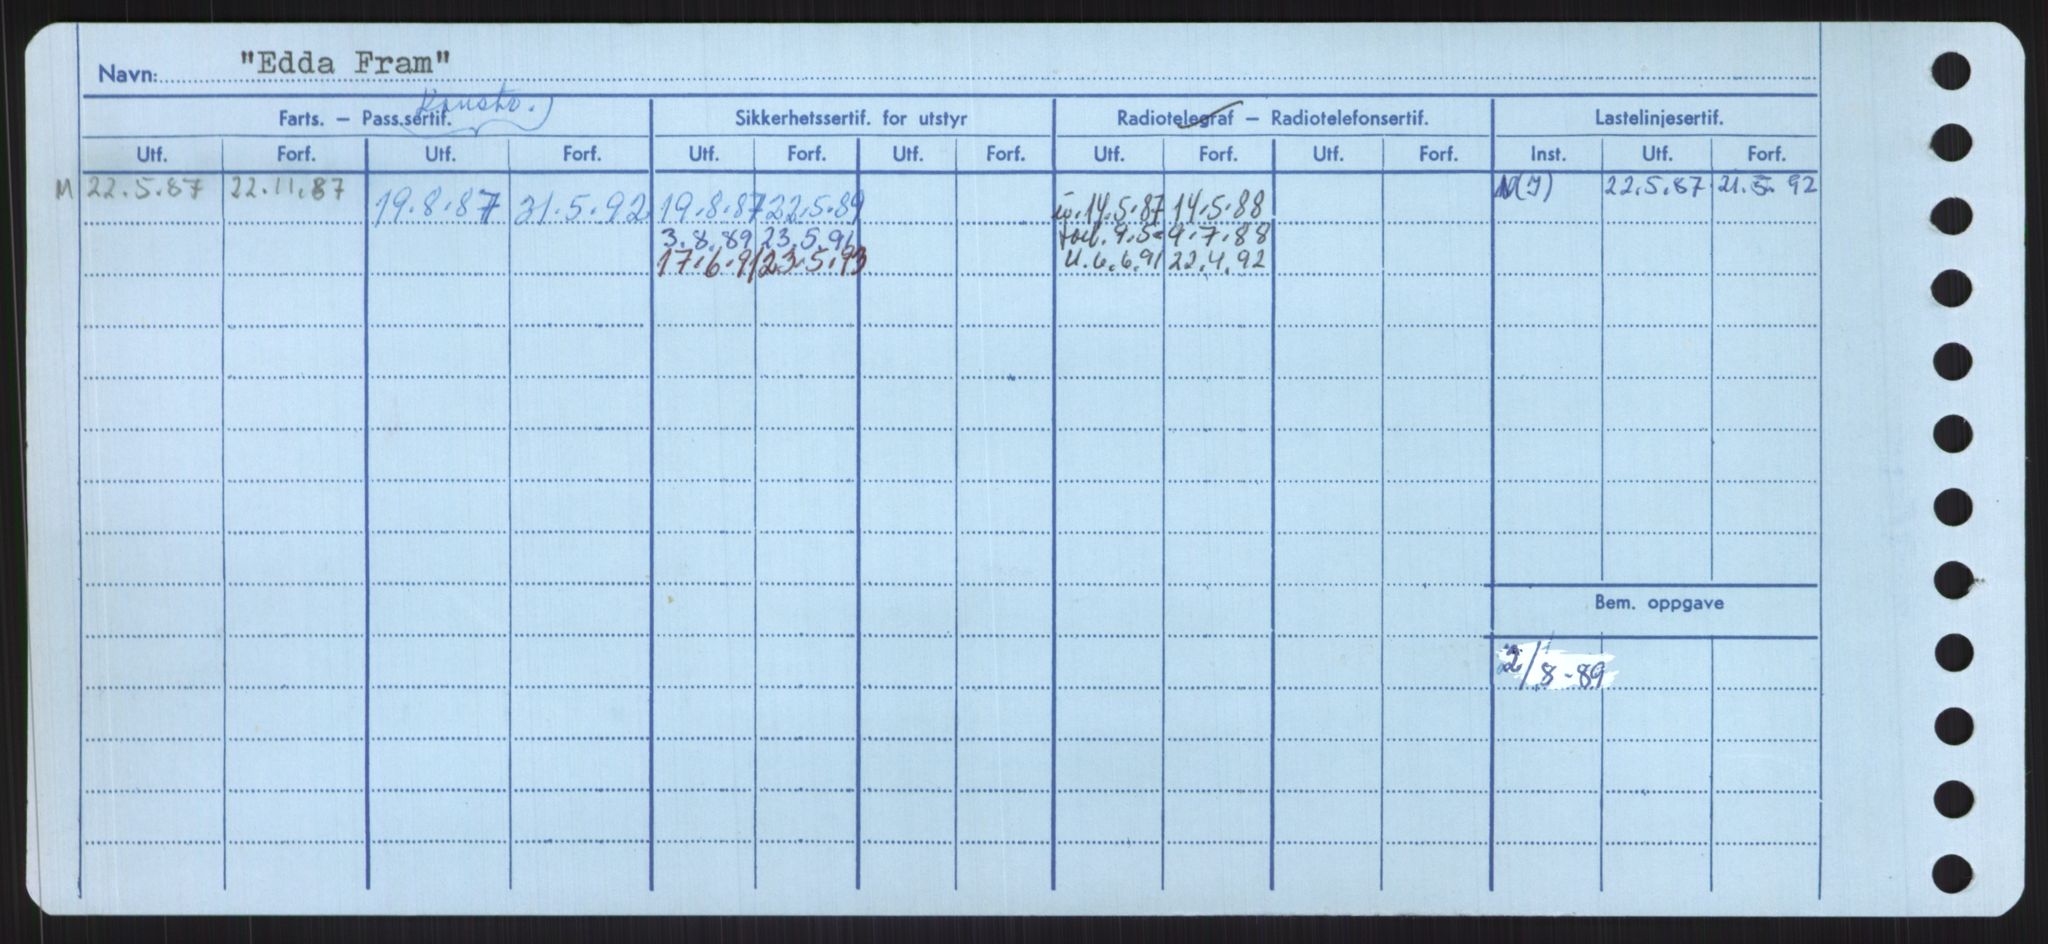 Navn: "Edda Fram"
Konstr.
Farts. — Pass.sertif. Sikkerhetssertif. for utstyr Radiotelegraf — Radiotelefonsertif. Lastelinjesertif.
Utf. Forf. Utf. Forf. Utf. Forf. Utf. Forf. Utf. Forf. Utf. Forf. Inst. Utf. Forf.
M 22.5.87 22.11.87 22.5.87 21.5.92
19.8.87 31.5.92 19.8.87 22.5.89 14.5.87 14.5.88
3.8.89 23.5.91 9.5 9.7.88
17.6.91 23.5.93 6.6.91 22.4.92
Bem. oppgave
2/8-89